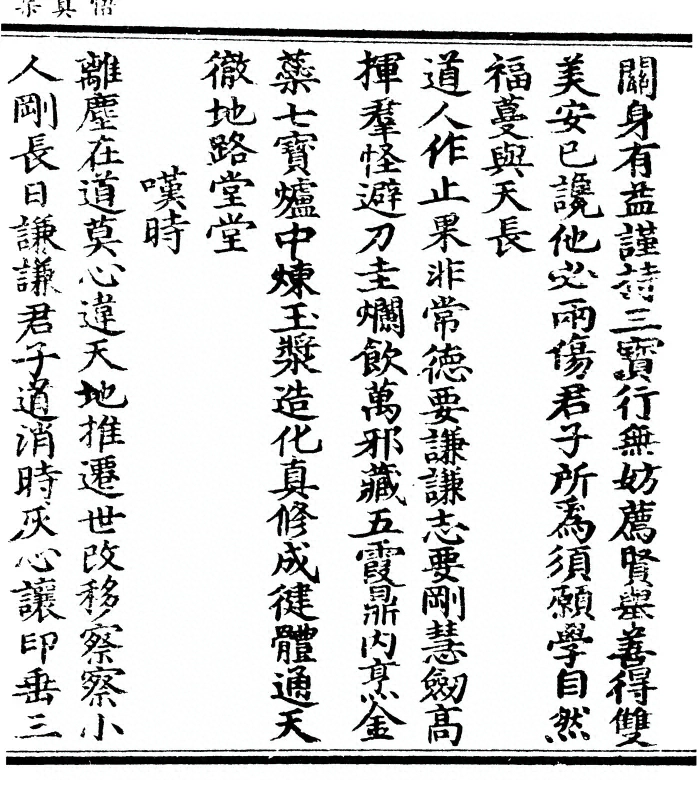 關身有益謹持三寶行無妨薦賢舉善得雙
美妄已讒他必兩傷君子所為須願學自然
福蔓與天長
道人作止果非常德要謙謙志要剛慧劒高
揮羣怪避刀圭爛飲萬邪藏五霞鼎內烹金
藥七寶爐中煉玉漿造化真修成健體通天
徹地路堂堂
嘆時
離塵在道莫心違天地推遷世改移察察小
人剛長日謙謙君子道消時灰心讓印垂三